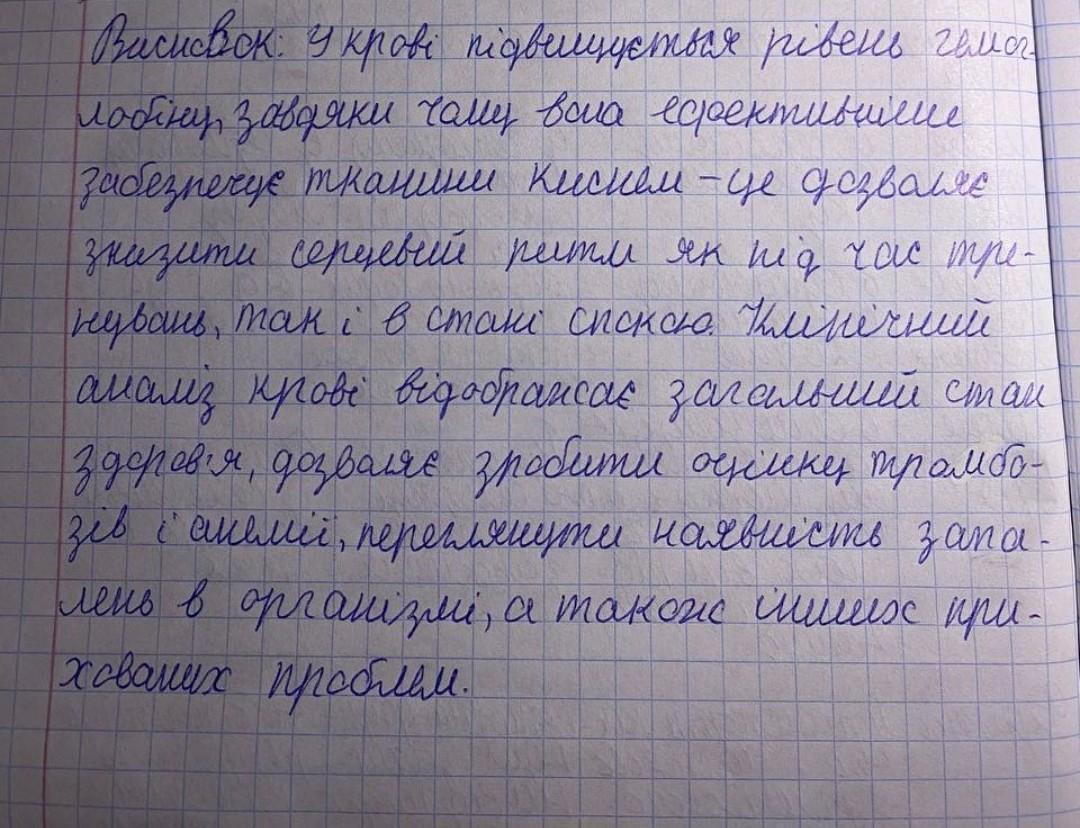 Висновок: У крові підвищується рівень гемог-
лобіну, завдяки чому вона ефективніше
забезпечує тканини киснем – це дозволяє
знизити серцевий ритм як під час тре-
нувань, так і в стані спокою. Клінічний
аналіз крові відображає загальний стан
здоров'я, дозволяє зробити оцінку тромбо-
зів і анемії, переглянути наявність запа-
лень в організмі, а також інших при-
хованих проблем.